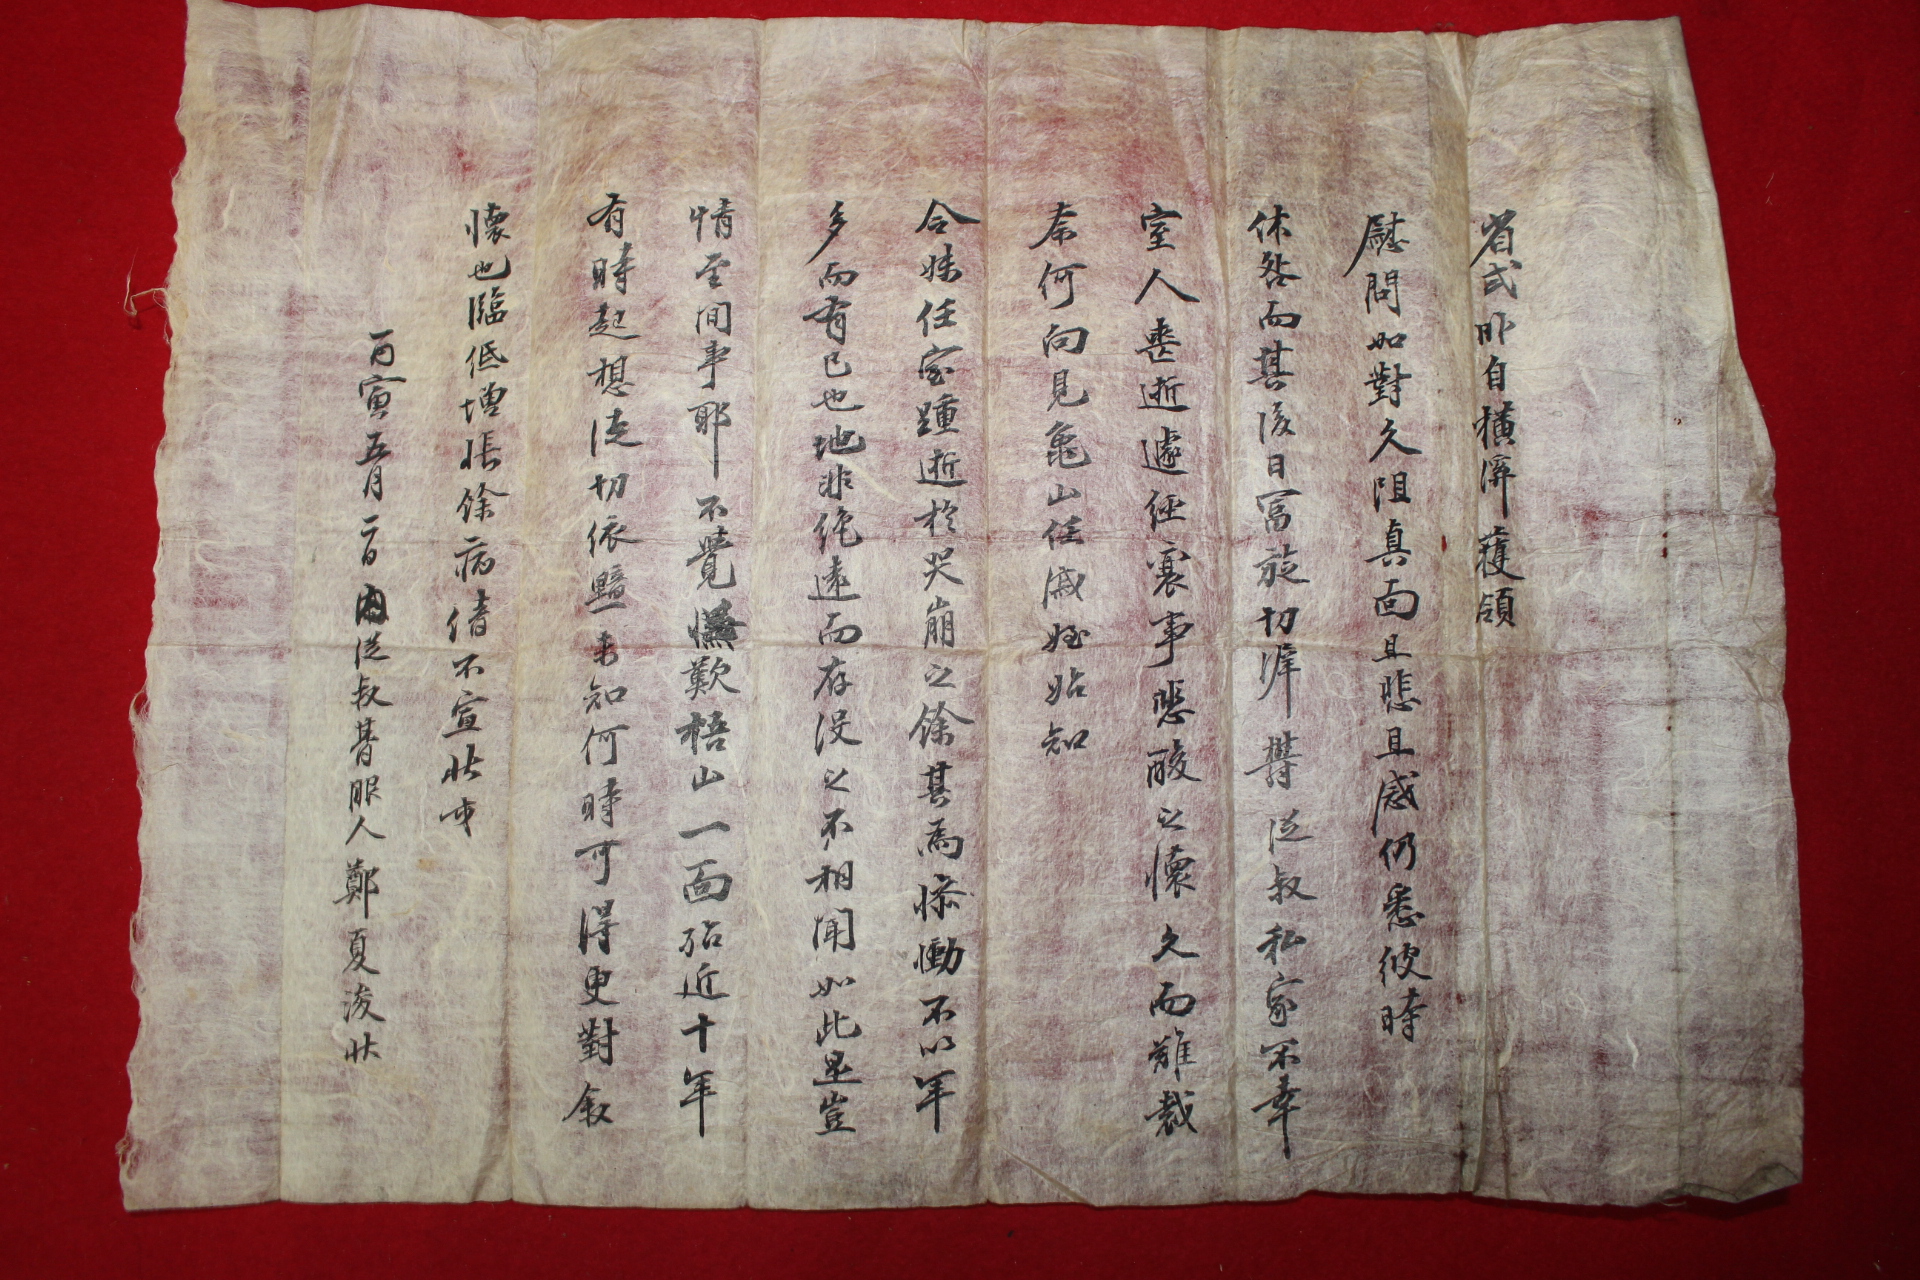 省式昨自橫溪獲領
慰問如對久阻眞面且悲且感仍悉彼時
休咎而其後日富旋切 從叔私家不幸
室人喪逝遽經襄事悲酸之懷久而難裁
奈何向見龜山任戚姪始知
令妹任室踵逝於哭崩之餘其爲慘慟不以年
多而有已也地非絶遠而存沒之不相聞如此是豈
情至間事耶不覺 歎梧山一面玷近十年
有時起想徒切依黯未知何時可得更對敘
懷也臨低增悵餘病倩不宣狀
丙寅五月二日 從叔朞服人鄭夏浚狀